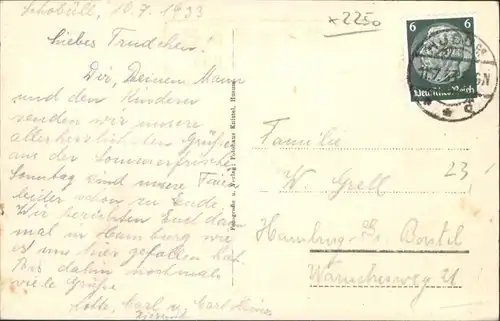 Schobüll, 10.7.1933
Liebes Trudchen!
Dir, Deinem Mann
und den Kindern
senden wir unsere
allerherzlichsten Grüße
aus der Sommerfrische
Sonntag sind unsere Ferien
leider schon zu Ende.
Wir berichten Euch dann
mal in Hamburg wie
es uns hier gefallen hat.
Bis dahin nochmals
viele Grüße
Lotte, Carl u. Carl Heinz
x2250
6 6
Deutsches Reich
HUSUM
Familie
W. Grell
23
Hamburg-Gr. Borstel
Warnckesweg 21